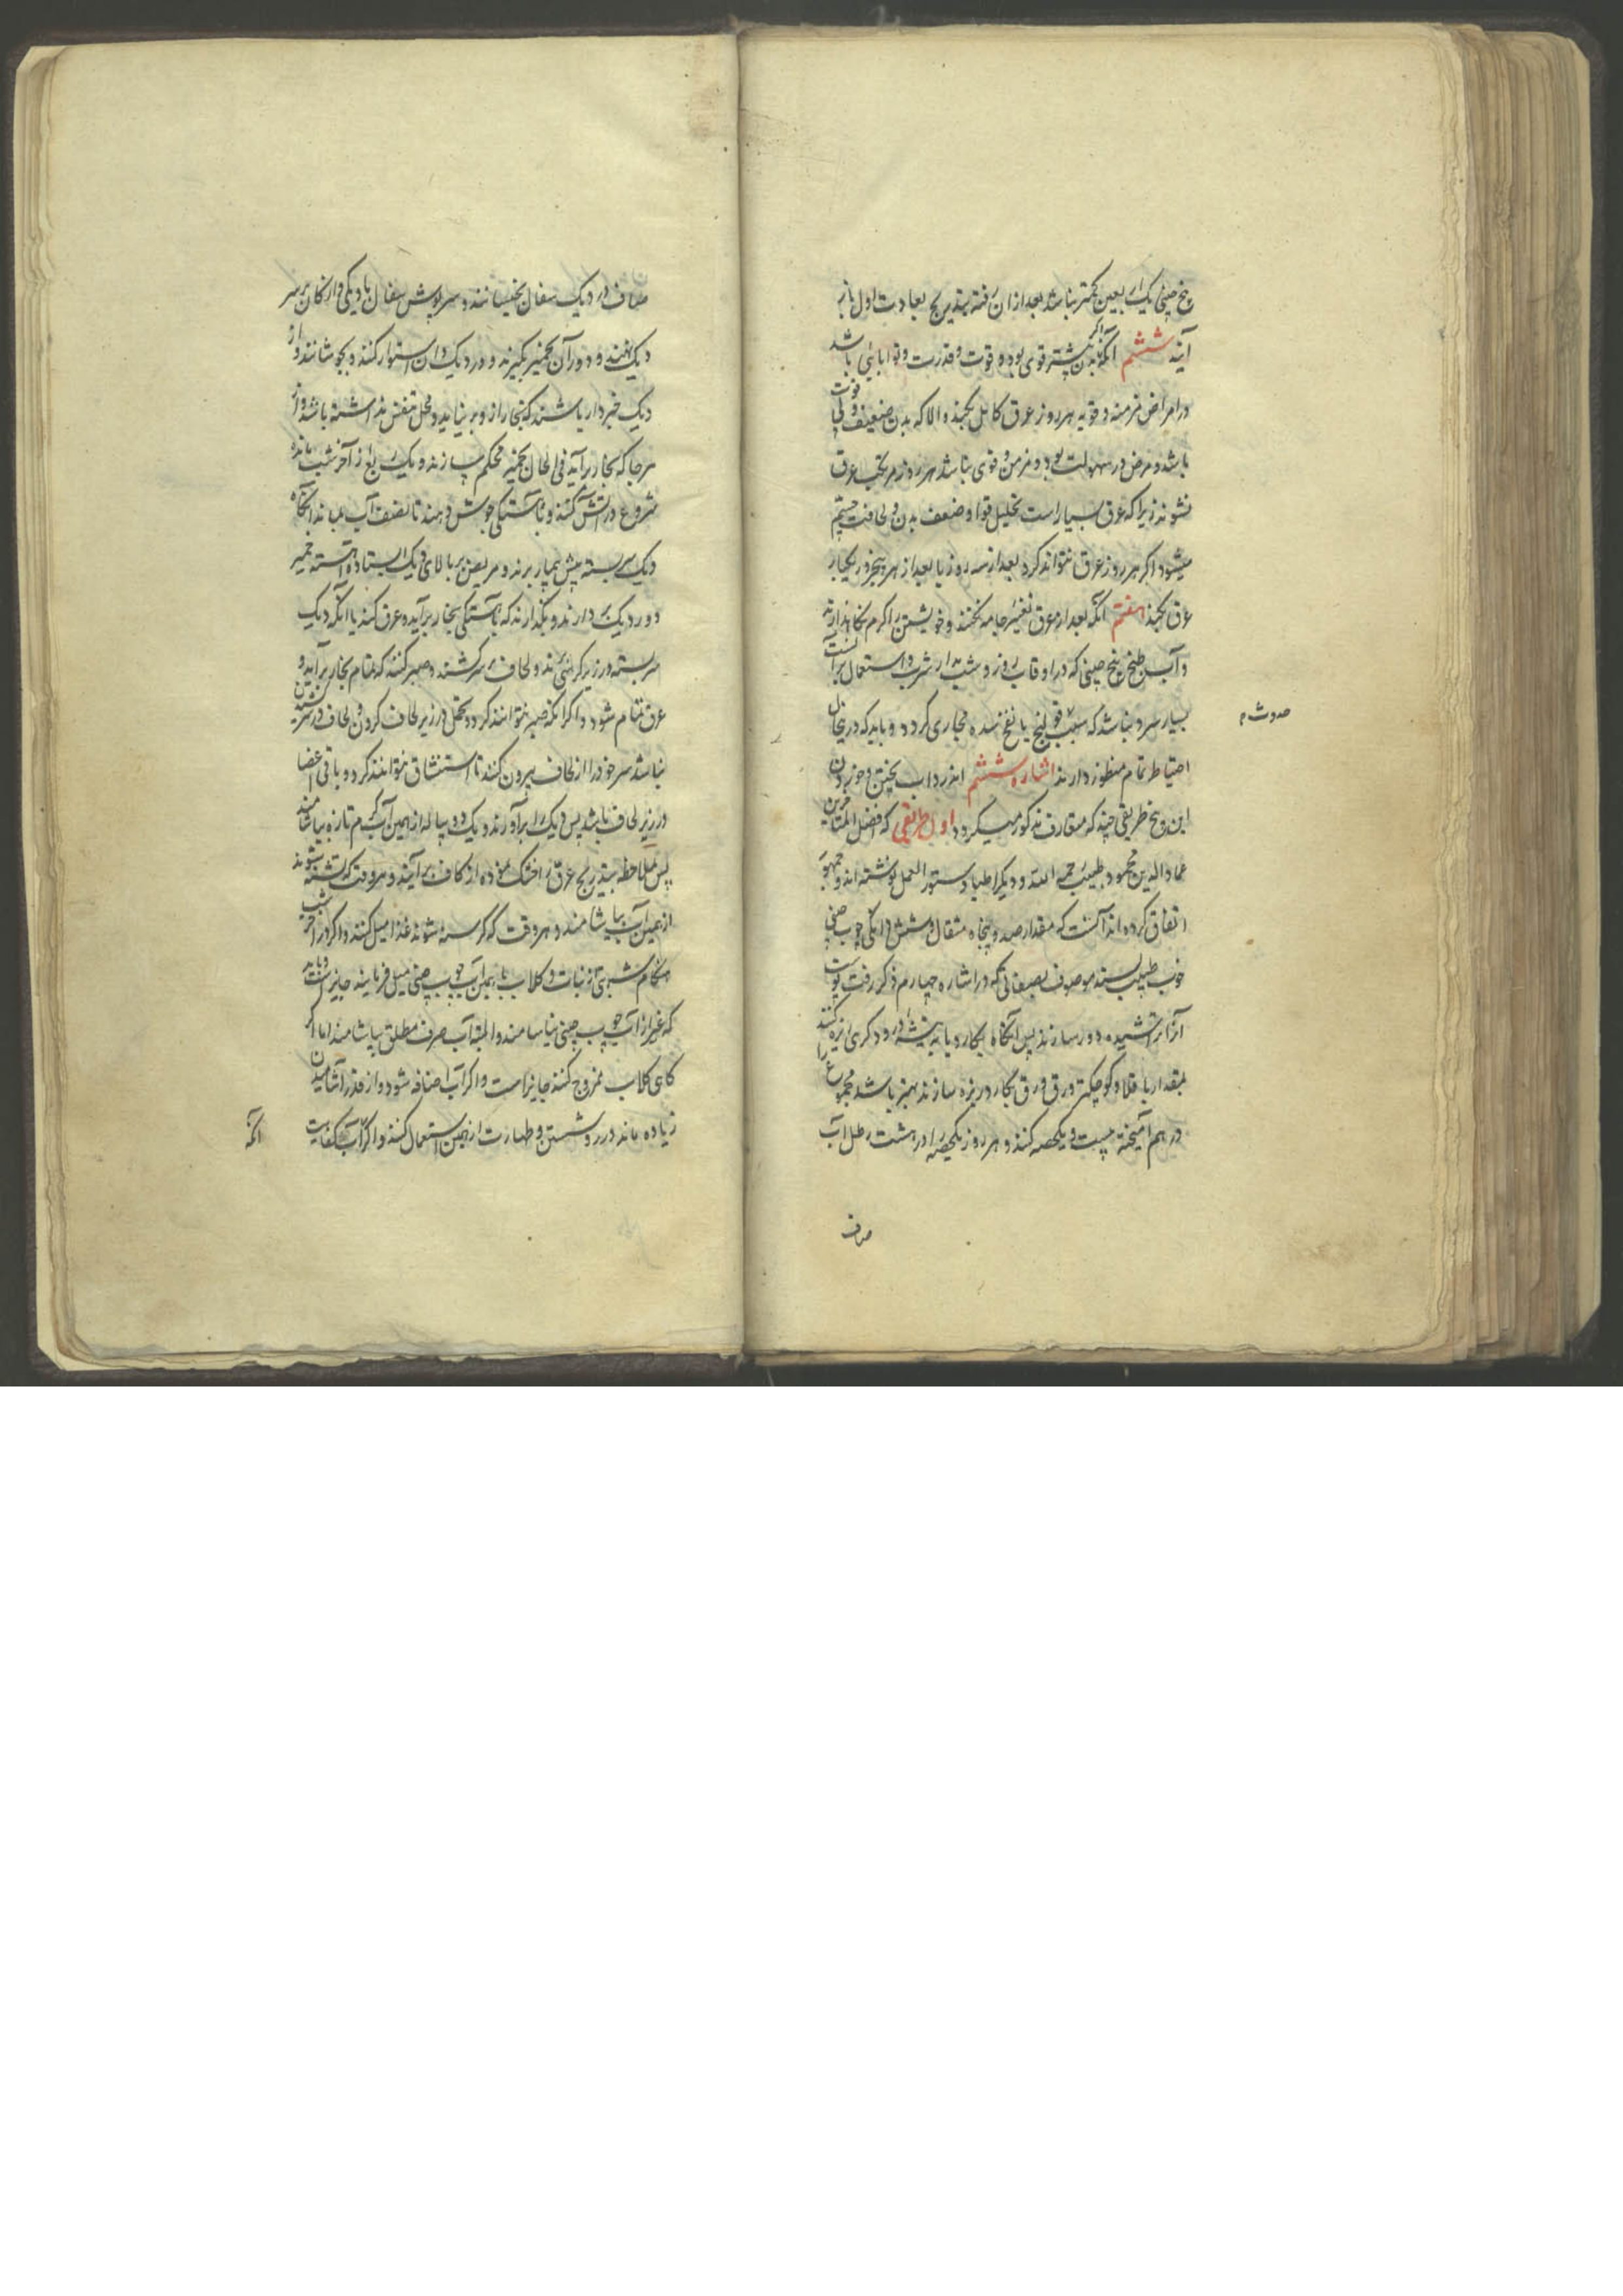 بیخ چینی یک اربعین کمتر نباشد بعد از ان رفته بتدریج بعادت اول باز
آیند ششم آنکه اگر بدن بیشتر قوی بود و قوت و قدرت و توانایی باشد
در امراض مزمنه و قویه هر روز عرق کامل بکنند و الا که بدن ضعیف و قوت
باشد و مرض در سهولت بود و مزمن و قوی نباشد هر روز مرتکب عرق
نشوند زیرا که عرق بسیار است تحلیل قوا و ضعف بدن و لحافت جسم
میشود اگر هر روز عرق نتواند کرد بعد از سه روز یا بعد از هر پنجروز یکبار
عرق بکنند هفتم آنکه بعد از عرق تغییر جامه نکنند و خویشتن را گرم نگاهدارند
و آب طبخ بیخ چینی که در اوقات روز و شب مدار شرب و استعمال بر آنست
بسیار سرد نباشد که سبب قولنج یا نفخ سده مجاری کردد و باید که در اینحال
احتیاط تمام منظور دارند اشاره ششم اندر داب پختن و خوردن
این و بیخ طریقی چند که متعارف مذکور میکردد اول طریقی که افضل المتأخرین
عماد الدین محمود طبیب رحمه الله و دیگر اطبا دستور العمل نوشته اند و جمهور
اتفاق کرده اند آنست که مقدار صد و پنجاه مثقال و شش دانکی چوب چینی
خوب طبیب پسند موصوف بصفاتی که در اشاره چهارم ذکر رفت پوست
آنرا تراشیده دور سازند پس آنگاه بکارد یا به تیشه درودکری ریزه کنند
بمقدار باقلا و کوچکتر ورق ورق بکارد ریزه سازند بهتر باشد مجموع را
در هم آمیخته بیست و یکحصه کنند و هر روز یکحصه را در هشت رطل آب
صاف
صاف در دیک سفال بخیسانند و سرپوش سفال یا دیکی دار کان بر سر
دیک نهند و دور آن بخمیر بگیرند و در دیکدان استوار کنند و بجوشانند و از
دیک خبردار باشند که بخار از و بر نیاید و محل تنفس نداشته باشد و از
هر جا که بخار برآید فی الحال بخمیر محکم سازند و یک ربع از آخر شب مانده
شروع در آتش کنند و بآهستکی جوش دهند تا نصف آب بماند آنگاه
دیک سر بسته پیش بیمار برند و مریض بر بالای دیک ایستاده آهسته خمیر
دور دیک بردارند و بگذارند که بآهستگی بخار برآید و عرق کند یا آنکه دیک
سر بسته در زیر کرسی نهند و لحاف بر سر کشند و صبر کنند که تمام بخار برآید و
عرق تمام شود و اگر آنکه صبر نتوانند کرد و تحمل در زیر لحاف کردن و لحاف در سر کشیدن
نباشد سر خود را از لحاف بیرون کنند تا استنشاق توانند کرد و باقی اعضا
در زیر لحاف باشد پس دیک را برآورند و یک دو پیاله از همین آب گرم تازه بیاشامند
پس ملاحظه بتدریج عرق را خشک نموده از لحاف برآیند و هر وقت که تشنه شوند
از همین آب بیاشامند و هر وقت که گرسنه شوند غذا میل کنند و اگر در آخر شب
هنگام شربتی از نبات و کلاب با همین آب چوب چینی میل فرمایند جایز است و باید
که غیر از آب چوب چینی نیاشامند و البته آب صرف مطلق نیاشامند اما اگر
گاهی گلاب ممزوج کنند جایز است و اگر آب اضافه شود و از قدر آشامیدن
زیاده ماند در رو شستن و طهارت از همین استعمال کنند و اگر آب کفایت